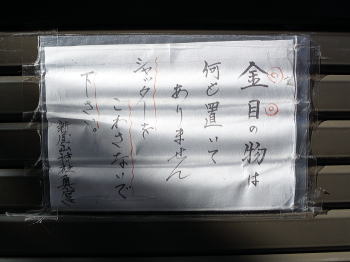 金目の物は
何も置いて
ありません
シャッターを
こわさないで
下さい。